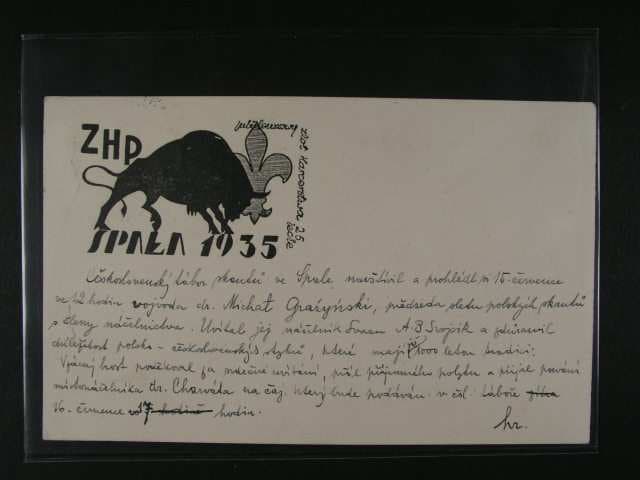 ZHP
jubileuszowy
zlot Harcerstwa 25
lecie
SPAŁA 1935
Československý tábor skautů ve Spale, navštívil a prohlédl si 15. července
ve 12 hodin vojvoda dr. Michał Grażyński, předseda sletu polských skautů
s členy náčelnictva. Uvítal jej náčelník Svazu A. B. Svojsík a zdůraznil
důležitost polsko - československých styků, které mají 1000 letou tradici.
Vzácný host poděkoval za srdečné uvítání, přál příjemného pobytu a přijal pozvání
místonáčelníka dr. Charváta na čaj, který bude podáván v čsl. táboře
16. července v 17 hodin.
hr.